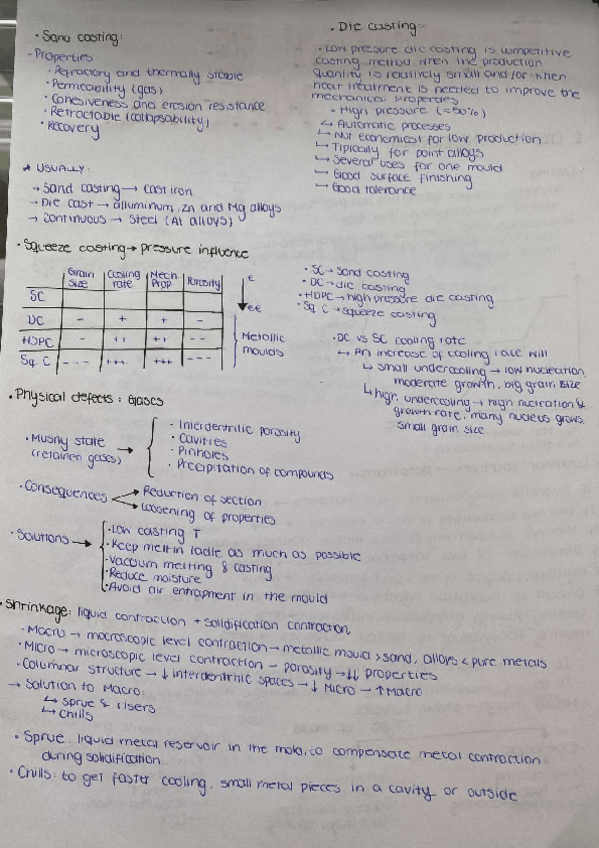 · Sand casting:
- Properties
· Refractory and thermally stable
· Permeability (gas)
· Cohesiveness and erosion resistance
· Retractable (collapsability)
· Recovery
★ USUALLY:
→ Sand casting → cast iron
→ Die cast → alluminum, Zn and Mg alloys
→ Continuous → Steel (Al alloys)
· Die casting:
· Low pressure die casting is competitive
casting method when the production
quantity is relatively small and/or when
heat treatment is needed to improve the
mechanical properties
· High pressure (≈50%)
↳ Automatic processes
↳ Not economical for low production
↳ Tipically for point alloys
↳ Several uses for one mould
↳ Good surface finishing
↳ Good tolerance
· Squeeze casting → pressure influence
Grain size | Cooling rate | Mech. Prop | Porosity
SC
DC | - | + | + | -
HDPC | - | ++ | ++ | --
Sq. C | --- | +++ | +++ | ---
€
€€
Metallic
moulds
· SC → sand casting
· DC → die casting
· HDPC → high pressure die casting
· Sq. C → squeeze casting
· DC vs SC cooling rate
↳ An increase of cooling rate will
↳ small undercooling → low nucleation,
moderate growth, big grain size
↳ high undercooling → high nucleation &
growth rate, many nucleus grows,
small grain size.
· Physical defects: Gases
· Mushy state
(retainen gases) →
· Interdentritic porosity
· Cavities
· Pinholes
· Precipitation of compounds
· Consequences
→ Reduction of section
→ Loosening of properties
· Solutions →
· Low casting T
· Keep melt in ladle as much as possible
· Vacuum melting & casting
· Reduce moisture
· Avoid air entrapment in the mould
· Shrinkage: liquid contraction + solidification contraction,
· Macro → macroscopic level contraction → metallic mould > sand, alloys < pure metals
· Micro → microscopic level contraction → porosity → ↓↓ properties
· Columnar structure → ↓ interdentritic spaces → ↓ Micro → ↑ Macro
→ Solution to Macro:
↳ sprue & risers
↳ Chills
· Sprue: liquid metal reservoir in the mold, to compensate metal contraction
during solidification.
· Chills: to get faster cooling, small metal pieces in a cavity or outside